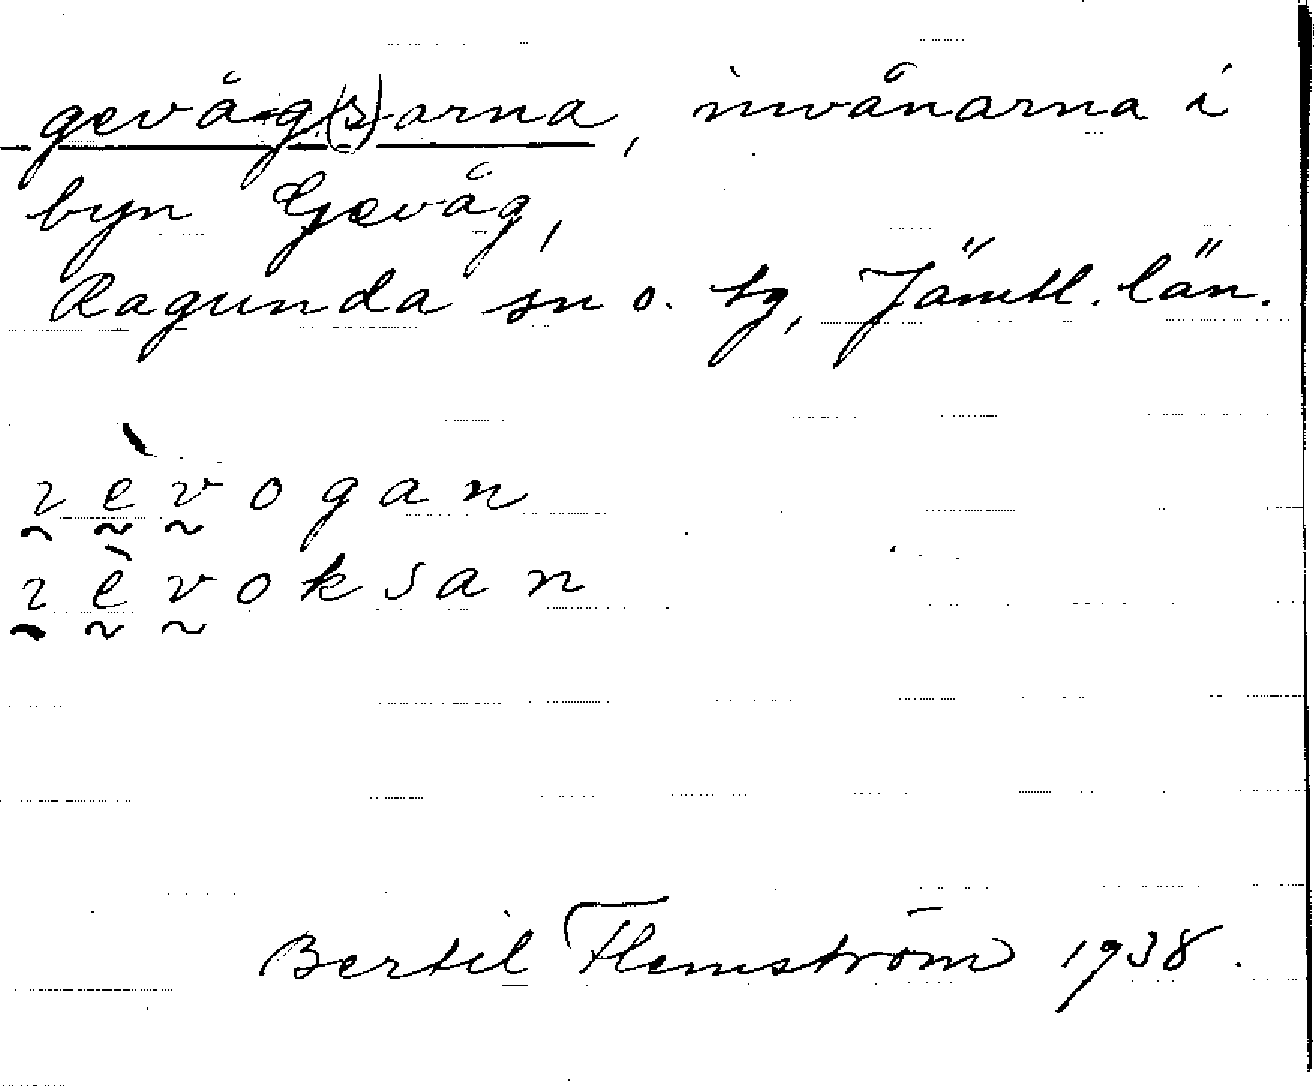 gevåg(s)arna, invånarna i
byn Gevåg,
Ragunda sn o. tg, Jämtl. län.
ı̰ḛ̀v̰ogan
ı̰ḛ̀v̰oksan
Bertil Flemström 1938.